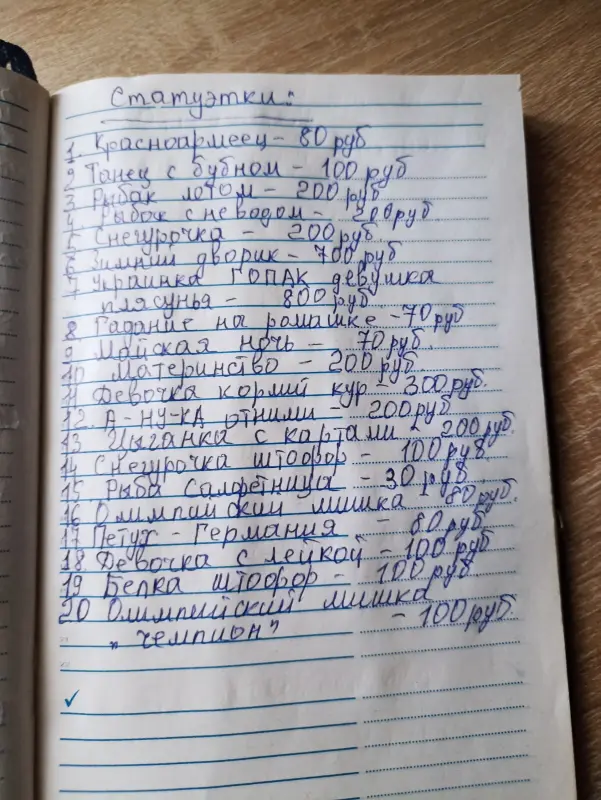 Статуэтки:
1. Красноармеец - 80 руб
2 Танец с бубном - 100 руб
3 Рыбак лотом - 200 руб
4 Рыбак с неводом - 200 руб.
5 Снегурочка - 200 руб
6 Зимний дворик - 700 руб
7 Украинка ГОПАК девушка
плясунья - 800 руб
8 Гадание на ромашке - 70 руб
9 Майская ночь - 70 руб.
10 Материнство - 200 руб.
11 Девочка кормий кур - 300 руб.
12. А-НУ-КА отними - 200 руб
13 Цыганка с картами - 200 руб.
14 Снегурочка штофор - 100 руб.
15 Рыба Салфетница - 30 руб.
16 Олимпийский мишка - 80 руб.
17 Петух - Германия - 80 руб.
18. Девочка с лейкой - 100 руб
19 Белка штофор - 100 руб.
20 Олимпийский мишка
"чемпион" - 100 руб.